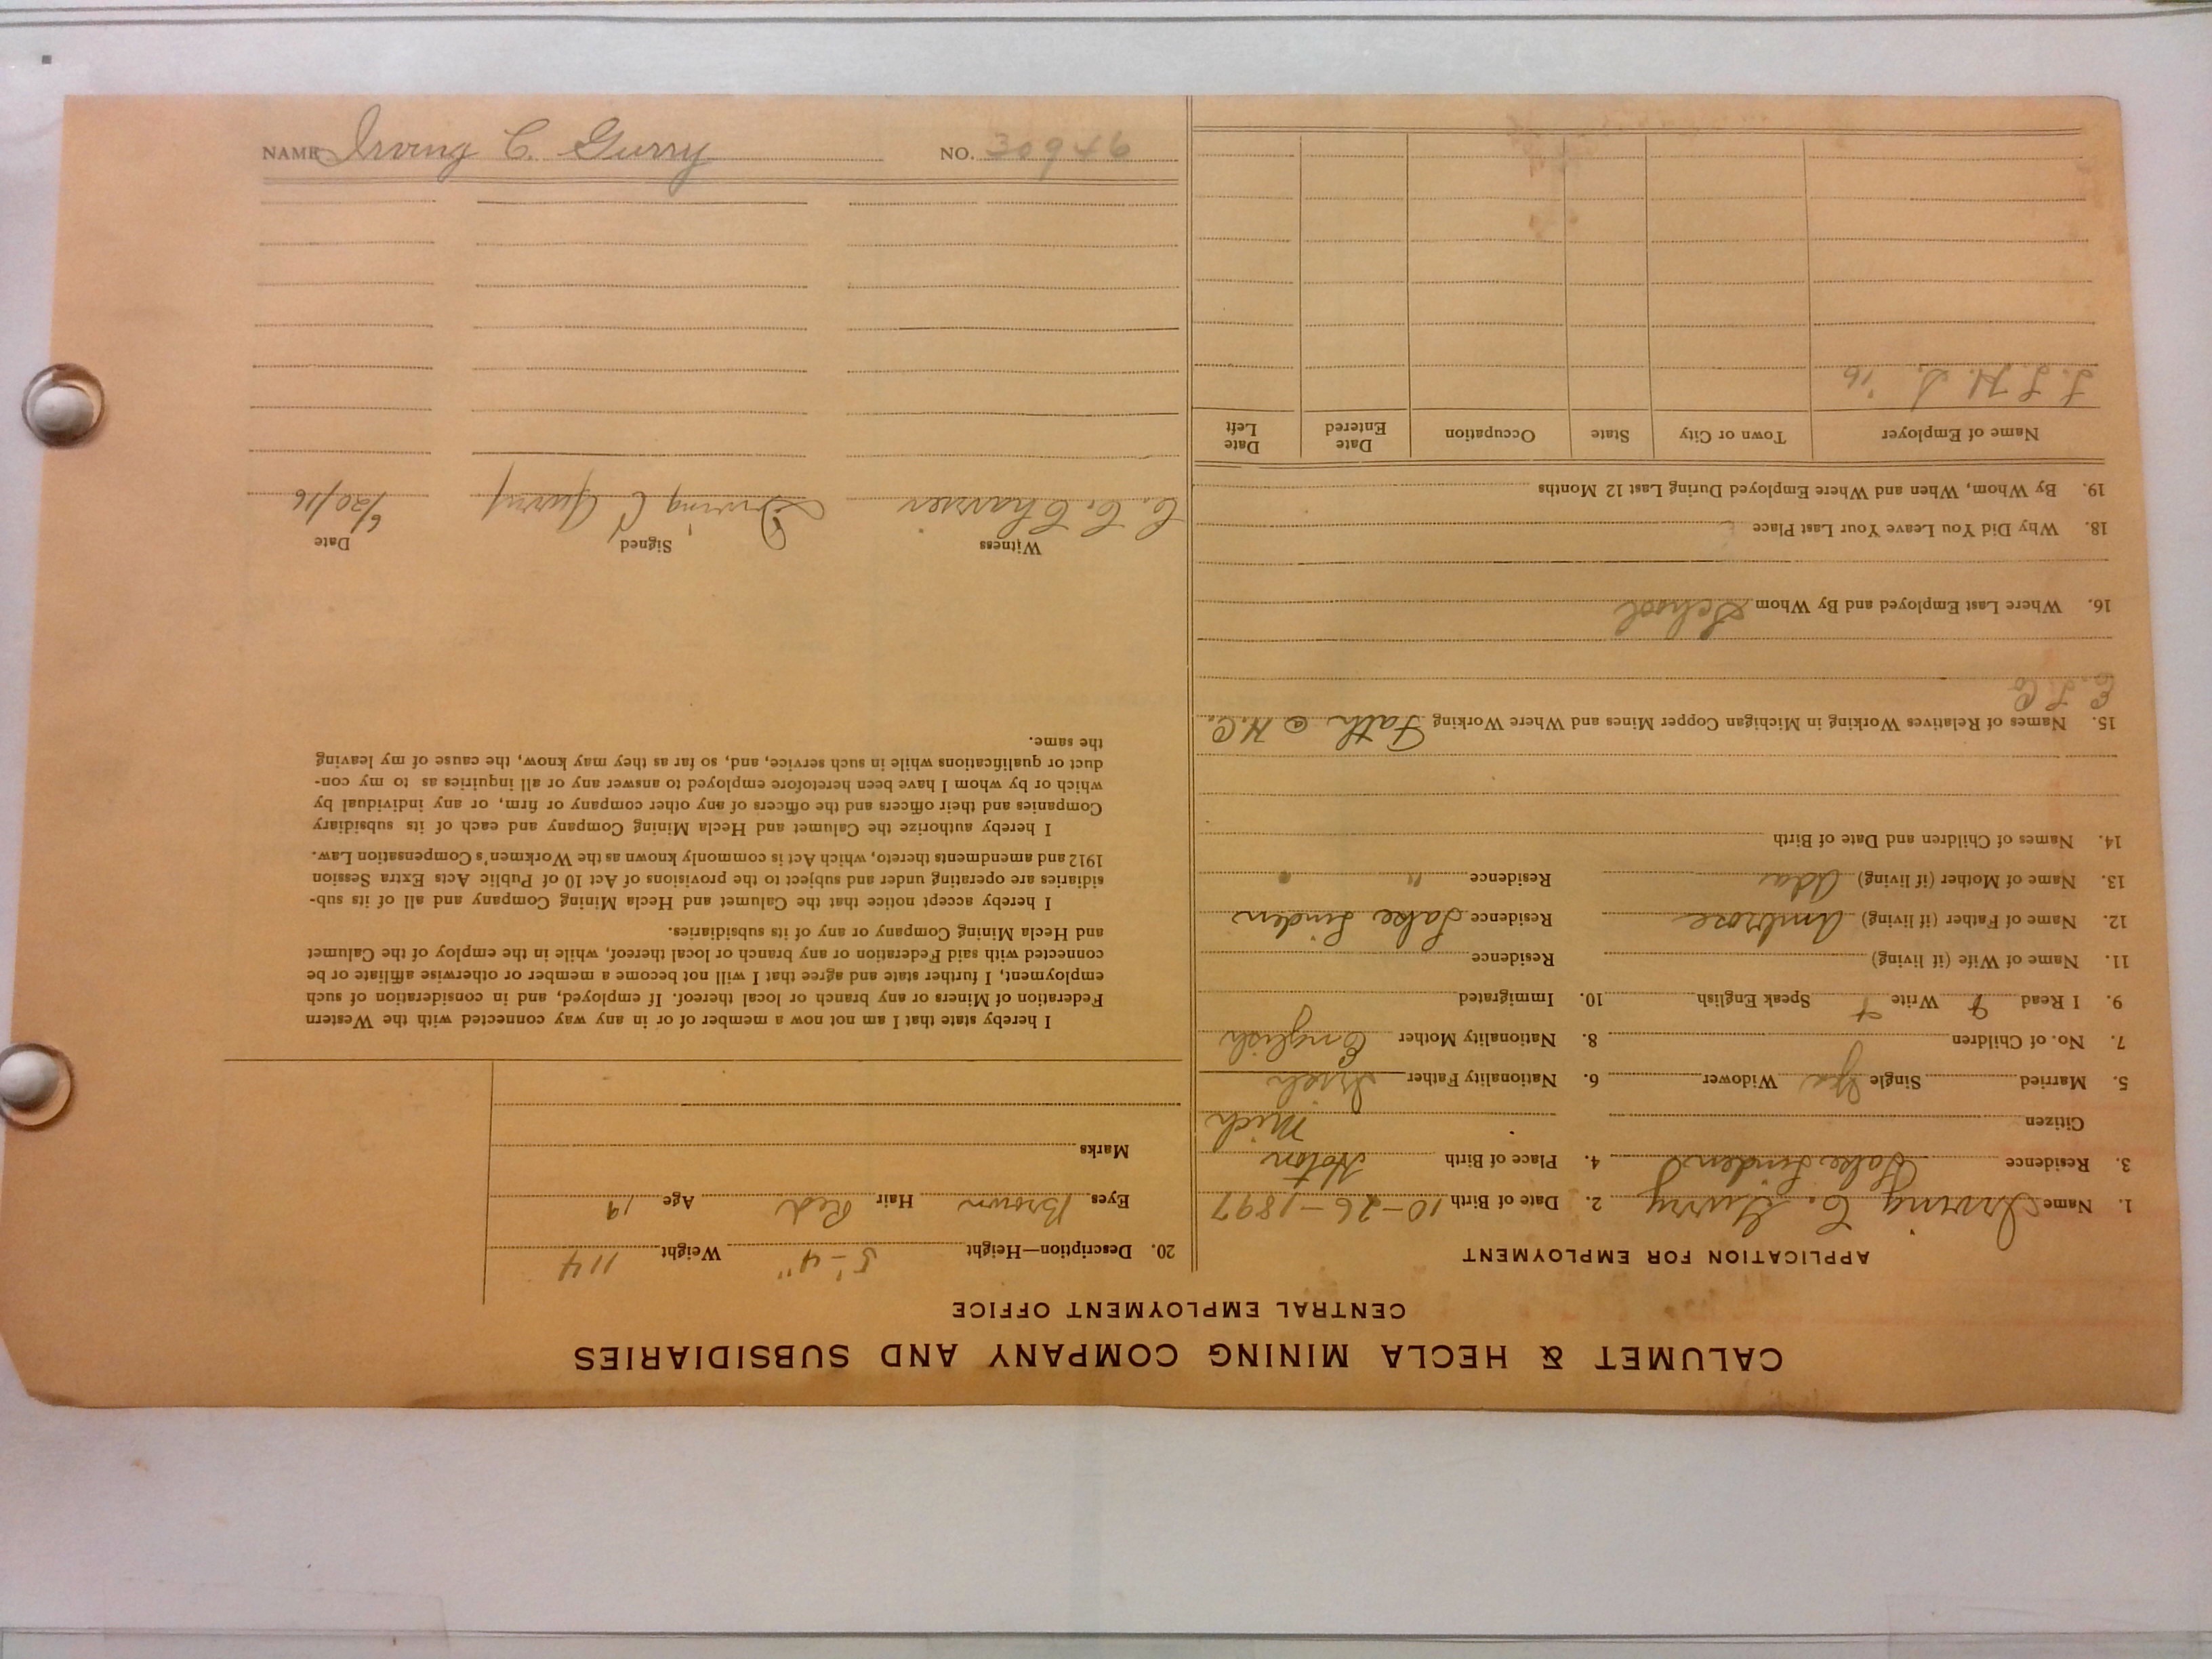 CALUMET & HECLA MINING COMPANY AND SUBSIDIARIES
CENTRAL EMPLOYMENT OFFICE
APPLICATION FOR EMPLOYMENT
1. Name Irving C. Gurry 2. Date of Birth 10-26-1897
3. Residence Lake Linden 4. Place of Birth Hoton
Citizen Mich
5. Married Single Yes Widower 6. Nationality Father Irish
7. No. of Children 8. Nationality Mother English
9. I Read Write Speak English 10. Immigrated
11. Name of Wife (if living) Residence
12. Name of Father (if living) Ambrose Residence Lake Linden
13. Name of Mother (if living) Ada Residence " "
14. Names of Children and Date of Birth
15. Names of Relatives Working in Michigan Copper Mines and Where Working Fath @ H.C.
16. Where Last Employed and By Whom School
18. Why Did You Leave Your Last Place
19. By Whom, When and Where Employed During Last 12 Months
Name of Employer Town or City State Occupation Date Entered Date Left
L. L. H. S. '16
20. Description—Height 5'-4" Weight 114
Eyes Brown Hair Red Age 19
Marks
I hereby state that I am not now a member of or in any way connected with the Western
Federation of Miners or any branch or local thereof. If employed, and in consideration of such
employment, I further state and agree that I will not become a member or otherwise affiliate or be
connected with said Federation or any branch or local thereof, while in the employ of the Calumet
and Hecla Mining Company or any of its subsidiaries.
I hereby accept notice that the Calumet and Hecla Mining Company and all of its sub-
sidiaries are operating under and subject to the provisions of Act 10 of Public Acts Extra Session
1912 and amendments thereto, which Act is commonly known as the Workmen's Compensation Law.
I hereby authorize the Calumet and Hecla Mining Company and each of its subsidiary
Companies and their officers and the officers of any other company or firm, or any individual by
which or by whom I have been heretofore employed to answer any or all inquiries as to my con-
duct or qualifications while in such service, and, so far as they may know, the cause of my leaving
the same.
Witness Signed Date
C. C. Chasser Irving C Gurry 6/20/16
NAME Irving C. Gurry NO. 30946